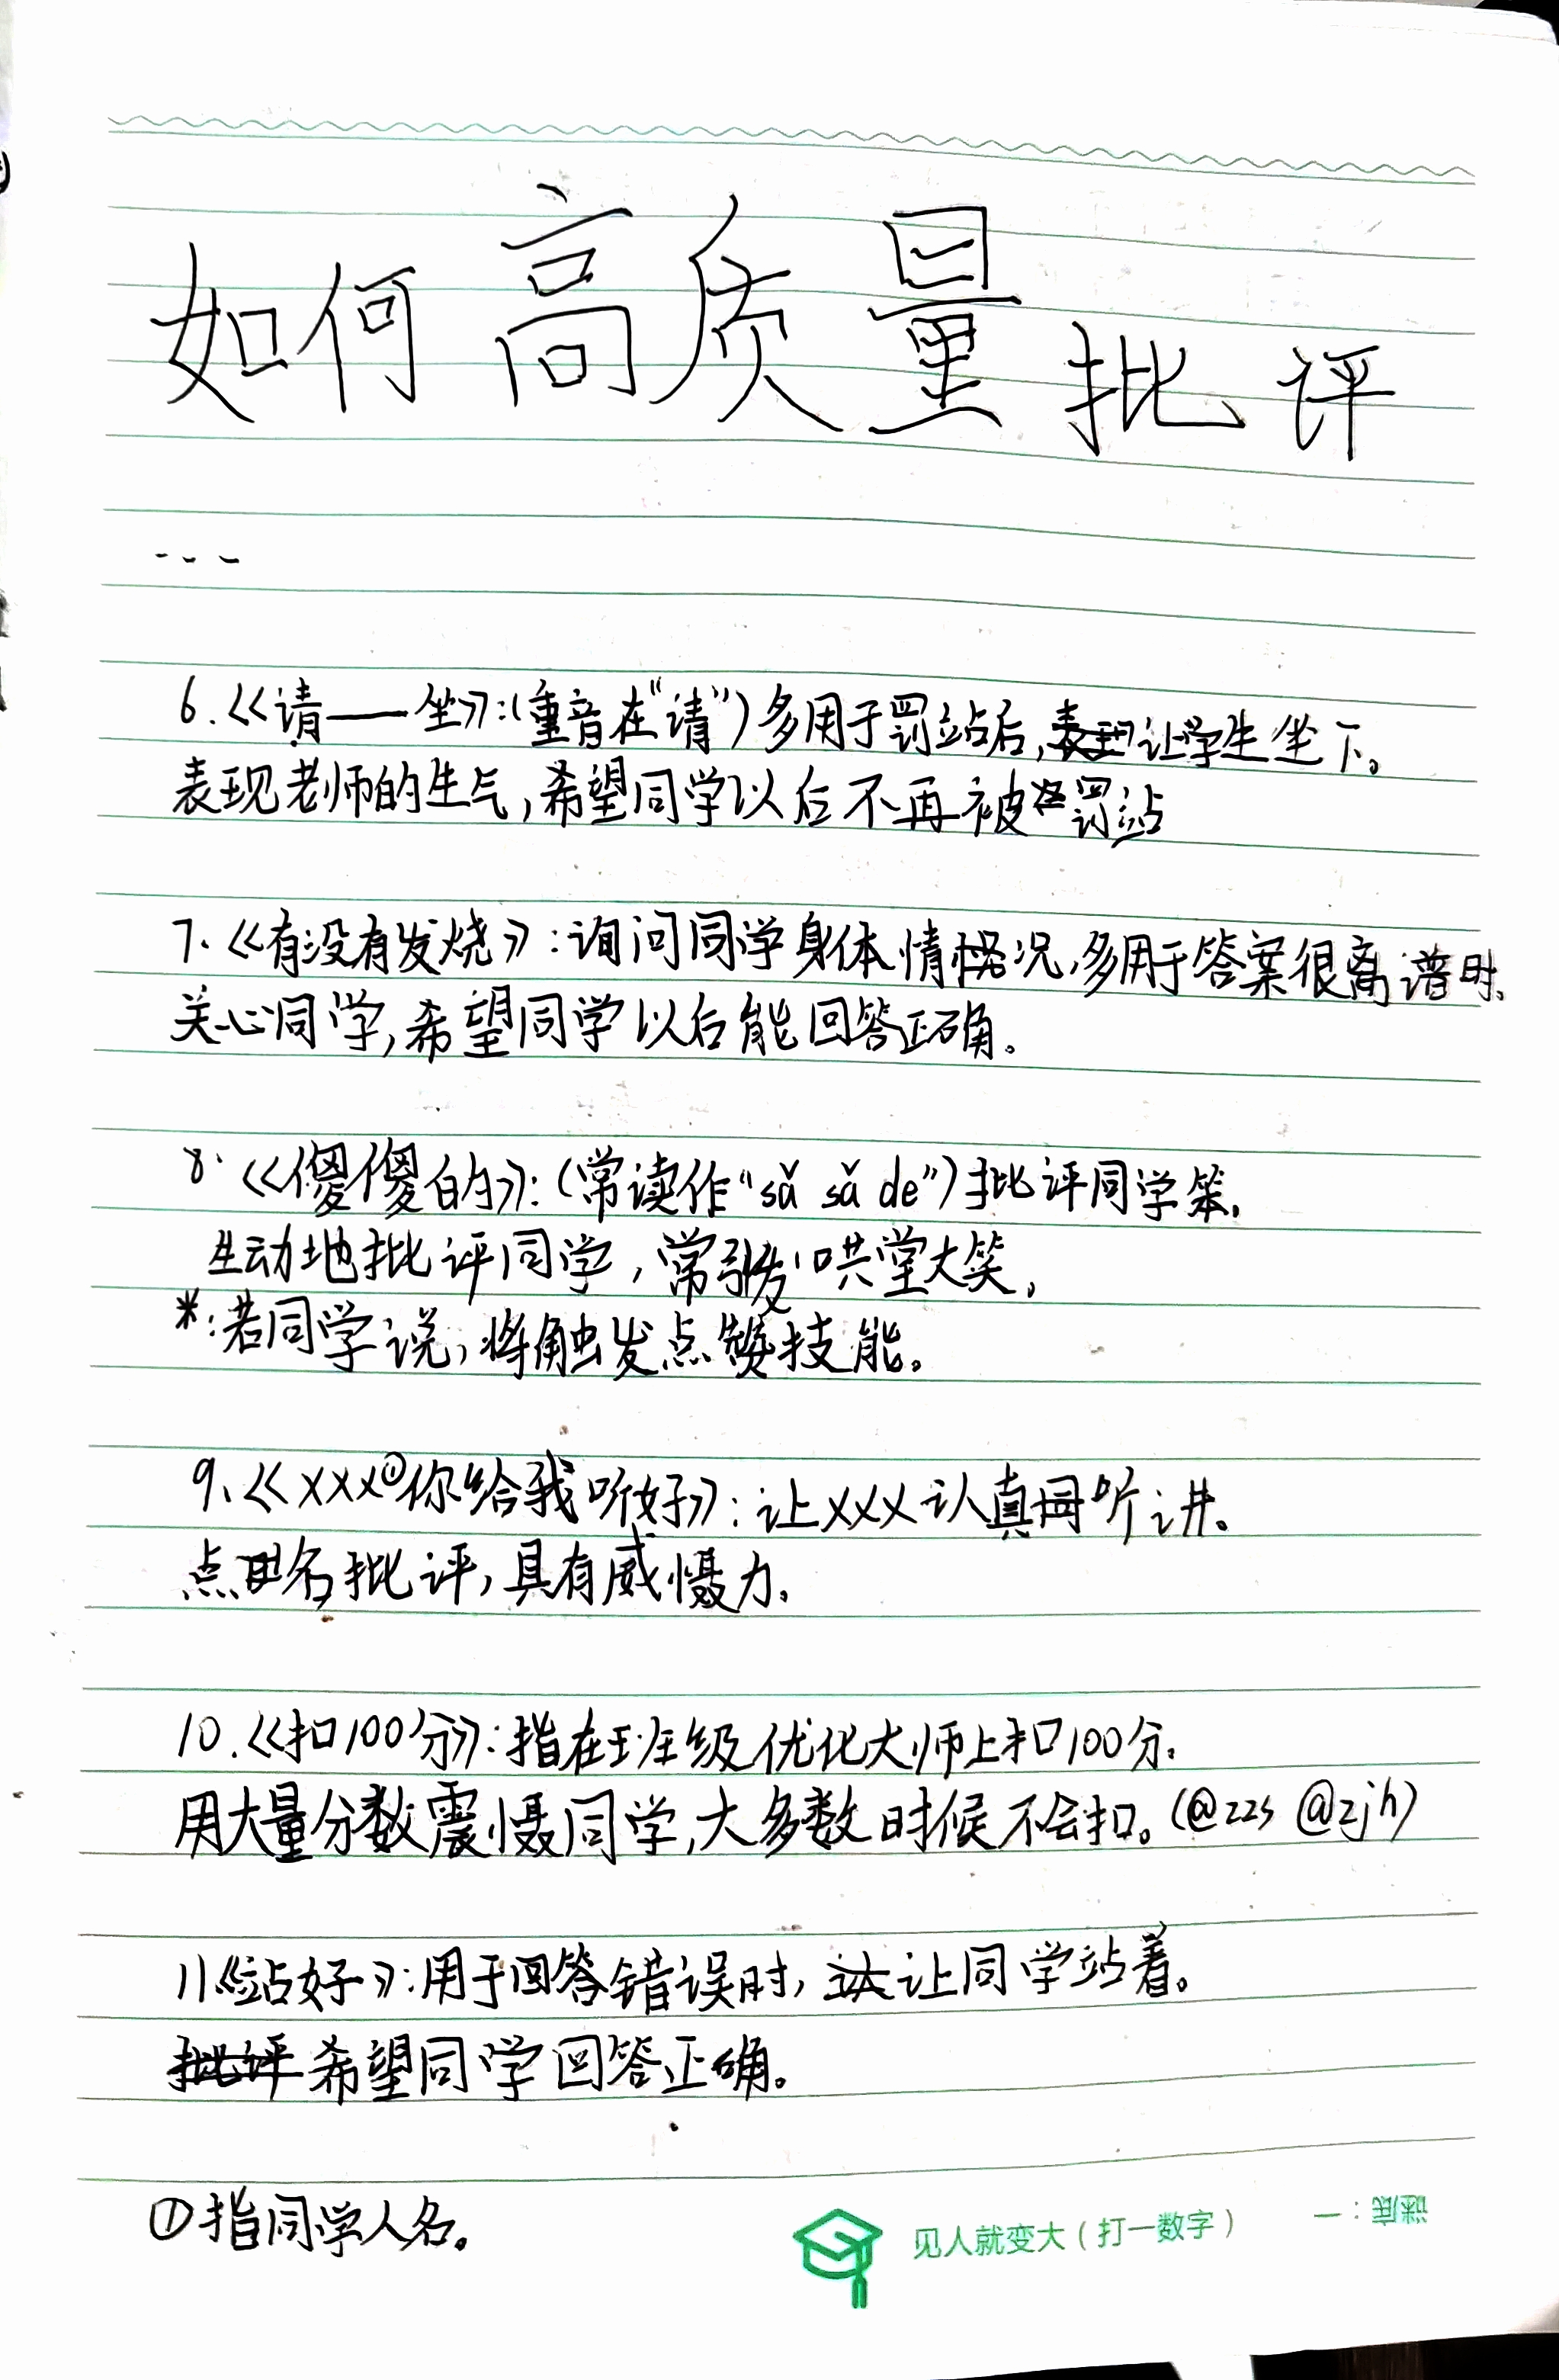 如何高质量批评
---
6.《请——坐》:(重音在“请”)多用于罚站后,让学生坐下。
表现老师的生气,希望同学以后不再被罚站
7、《有没有发烧》:询问同学身体情况,多用于答案很离谱时。
关心同学,希望同学以后能回答正确。
8.《傻傻的》:(常读作“sǎ sǎ de”)批评同学笨。
生动地批评同学,常引发哄堂大笑。
*:若同学说,将触发点赞技能。
9、《XXX①你给我听好》:让XXX认真听讲。
点名批评,具有威慑力。
10.《扣100分》:指在班级优化大师上扣100分。
用大量分数震慑同学,大多数时候不会扣。(@zzs @zjh)
11《站好》:用于回答错误时,让同学站着。
希望同学回答正确。
①指同学人名。
见人就变大(打一数字) 谜底:一